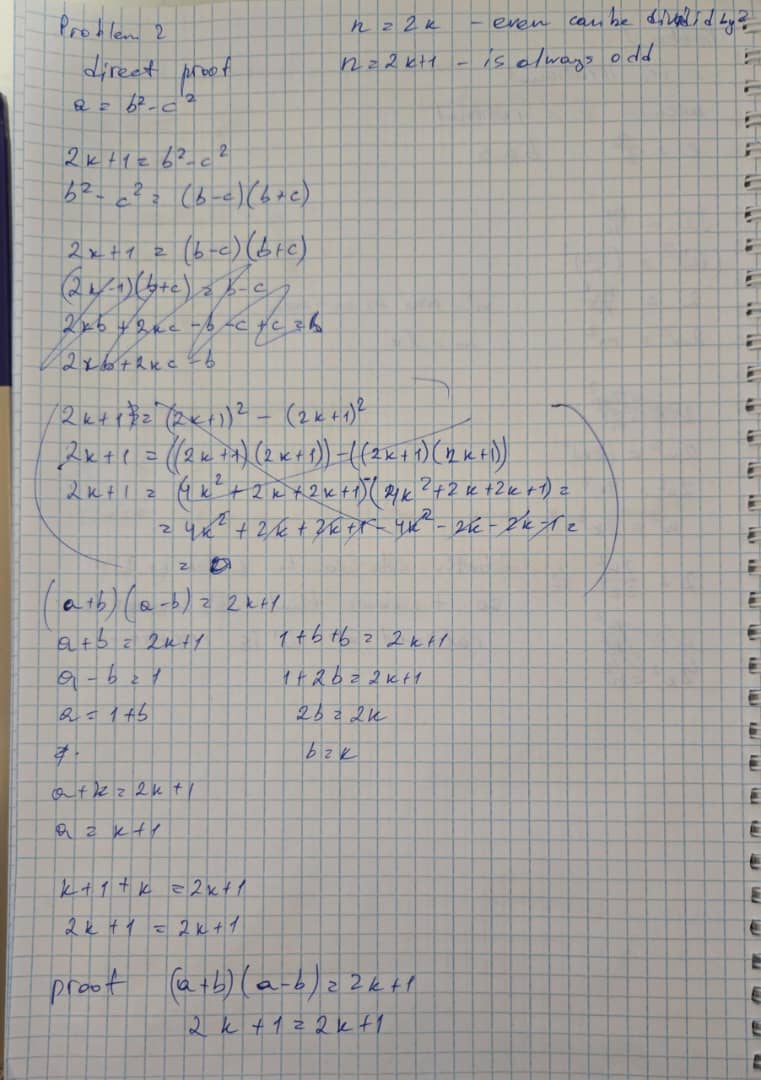 Problem 2
n = 2k - even can be divided by 2
direct proof
n = 2k+1 - is always odd
a = b² - c²
2k+1 = b² - c²
b² - c² = (b-c)(b+c)
2k+1 = (b-c)(b+c)
(2k+1)(b+c) = b-c
2kb + 2kc - b - c + c = b
2kb + 2kc - b
2k+1 = (2k+1)² - (2k+1)²
2k+1 = ((2k+1)(2k+1)) - ((2k+1)(2k+1))
2k+1 = (4k² + 2k + 2k+1) - (4k² + 2k + 2k+1) =
= 4k² + 2k + 2k+1 - 4k² - 2k - 2k - 1 =
= 0
(a+b)(a-b) = 2k+1
a+b = 2k+1
1+b+b = 2k+1
a-b = 1
1+2b = 2k+1
a = 1+b
2b = 2k
b = k
a+k = 2k+1
a = k+1
k+1+k = 2k+1
2k+1 = 2k+1
proof (a+b)(a-b) = 2k+1
2k+1 = 2k+1